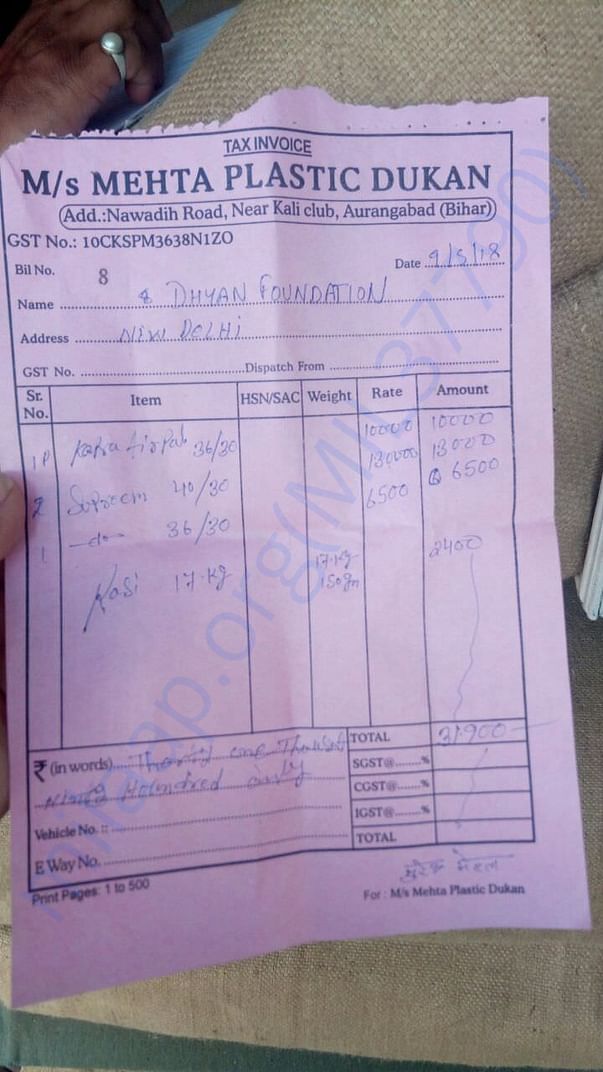 TAX INVOICE
M/s MEHTA PLASTIC DUKAN
Add.:Nawadih Road, Near Kali club, Aurangabad (Bihar)
GST No.: 10CKSPM3638N1ZO
Bil No. 8 Date 9/5/18
Name DHYAN FOUNDATION
Address NEW DELHI
GST No. Dispatch From
Sr. No. Item HSN/SAC Weight Rate Amount
1 P 36/30 10000 10000
2 Supreem 40/30 130000 13000
1 —do— 36/30 6500 6500
Rasi 17.kg 17.kg 150gm 2400
TOTAL 31900
₹ (in words) one
SGST@ %
CGST@ %
IGST@ %
Vehicle No. :
TOTAL
E Way No.
Print Pages: 1 to 500
For : M/s Mehta Plastic Dukan
milaap.org(MIL37790)